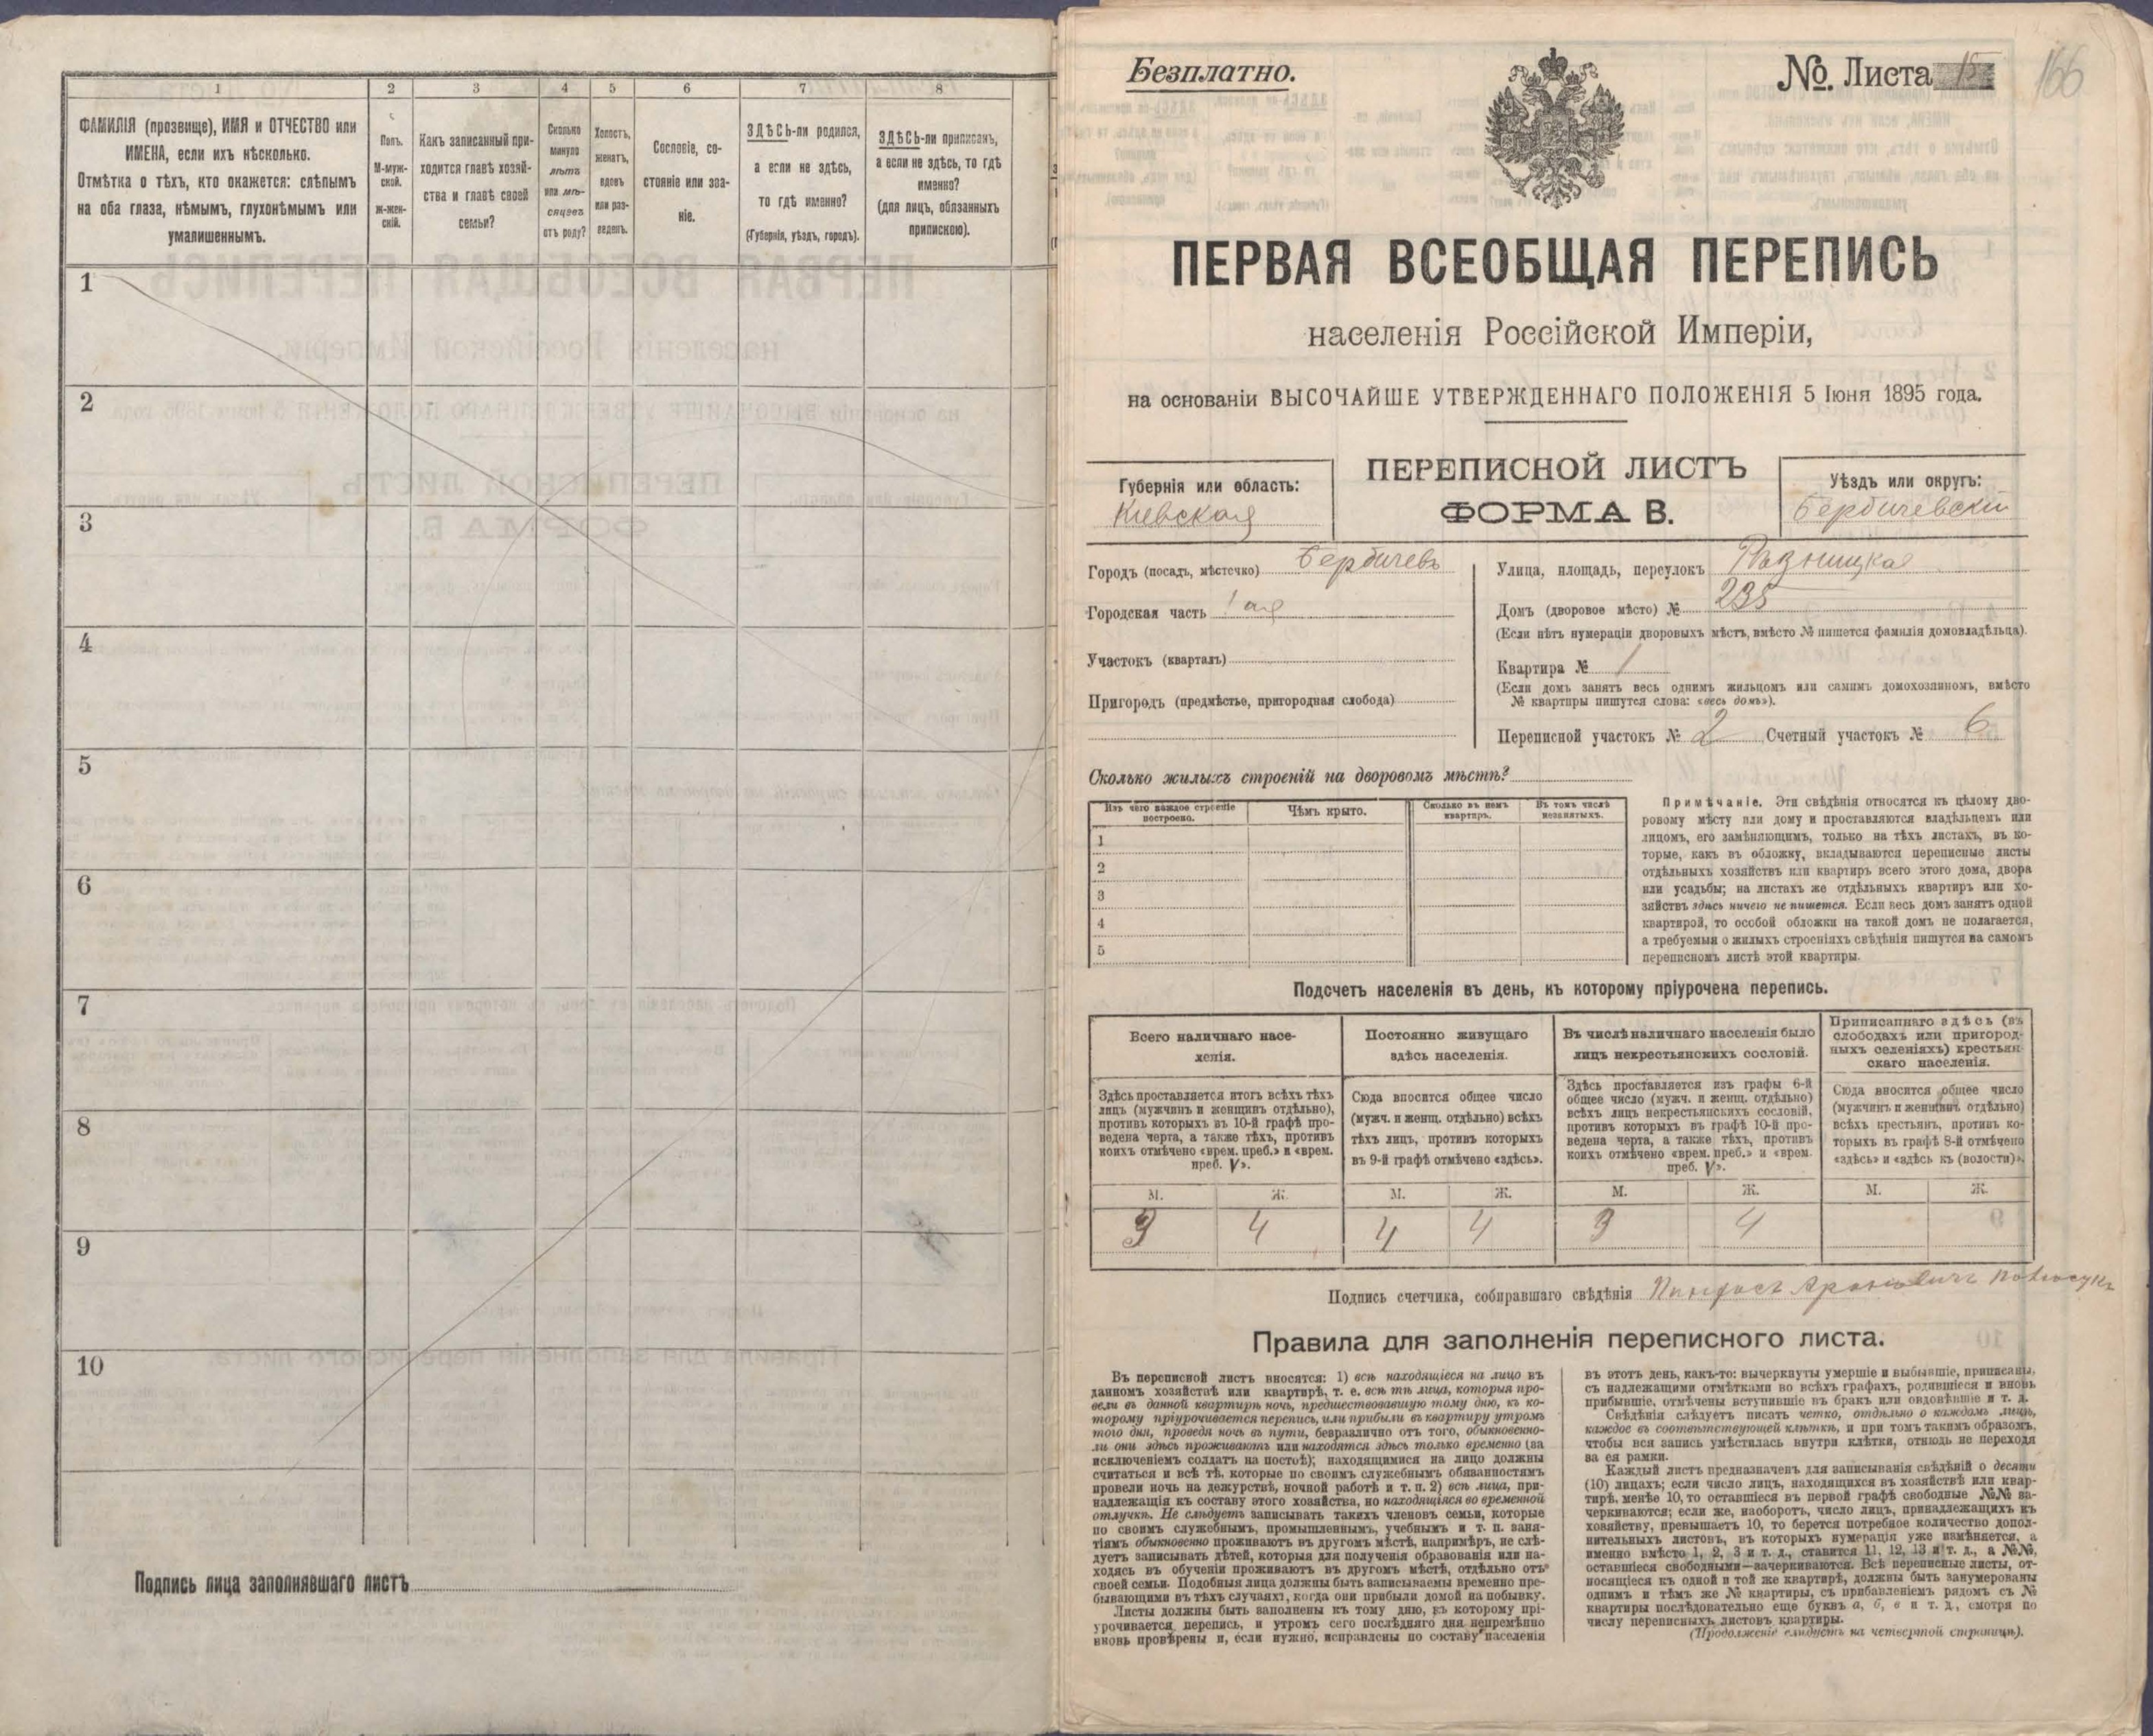 1 2 3 4 5 6 7 8
ФАМИЛІЯ (прозвище), ИМЯ и ОТЧЕСТВО или
ИМЕНА, если ихъ нѣсколько.
Отмѣтка о тѣхъ, кто окажется: слѣпымъ
на оба глаза, нѣмымъ, глухонѣмымъ или
умалишеннымъ.
Полъ.
М-муж-
ской.
ж-жен-
скій.
Какъ записанный при-
ходится главѣ хозяй-
ства и главѣ своей
семьи?
Сколько
минуло
лѣтъ
или мѣ-
сяцевъ
отъ роду?
Холостъ,
женатъ,
вдовъ
или раз-
веденъ.
Сословіе, со-
стояніе или зва-
ніе.
ЗДѢСЬ-ли родился,
а если не здѣсь,
то гдѣ именно?
(Губернія, уѣздъ, городъ).
ЗДѢСЬ-ли приписанъ,
а если не здѣсь, то гдѣ
именно?
(для лицъ, обязанныхъ
припискою).
1
2
3
4
5
6
7
8
9
10
Подпись лица заполнявшаго листъ
Безплатно.
№. Листа 15
166
ПЕРВАЯ ВСЕОБЩАЯ ПЕРЕПИСЬ
населенія Россійской Имперіи,
на основаніи ВЫСОЧАЙШЕ УТВЕРЖДЕННАГО ПОЛОЖЕНІЯ 5 Іюня 1895 года.
Губернія или область:
Кіевская
ПЕРЕПИСНОЙ ЛИСТЪ
ФОРМА В.
Уѣздъ или округъ:
Бердичевскій
Городъ (посадъ, мѣстечко) Бердичевъ
Городская часть 1ая
Участокъ (кварталъ)
Пригородъ (предмѣстье, пригородная слобода)
Улица, площадь, переулокъ
Домъ (дворовое мѣсто) № 235
(Если нѣтъ нумераціи дворовыхъ мѣстъ, вмѣсто № пишется фамилія домовладѣльца).
Квартира № 1
(Если домъ занятъ весь однимъ жильцомъ или самимъ домохозяиномъ, вмѣсто
№ квартиры пишутся слова: «весь домъ»).
Переписной участокъ № 2 Счетный участокъ № 6
Сколько жилыхъ строеній на дворовомъ мѣстѣ?
Изъ чего каждое строеніе
построено.
Чѣмъ крыто.
Сколько въ немъ
квартиръ.
Въ томъ числѣ
незанятыхъ.
1
2
3
4
5
Примѣчаніе. Эти свѣдѣнія относятся къ цѣлому дво-
ровому мѣсту или дому и проставляются владѣльцемъ или
лицомъ, его замѣняющимъ, только на тѣхъ листахъ, въ ко-
торые, какъ въ обложку, вкладываются переписные листы
отдѣльныхъ хозяйствъ или квартиръ всего этого дома, двора
или усадьбы; на листахъ же отдѣльныхъ квартиръ или хо-
зяйствъ здѣсь ничего не пишется. Если весь домъ занятъ одной
квартирой, то особой обложки на такой домъ не полагается,
а требуемыя о жилыхъ строеніяхъ свѣдѣнія пишутся на самомъ
переписномъ листѣ этой квартиры.
Подсчетъ населенія въ день, къ которому пріурочена перепись.
Всего наличнаго насе-
ленія.
Постоянно живущаго
здѣсь населенія.
Въ числѣ наличнаго населенія было
лицъ некрестьянскихъ сословій.
Приписаннаго здѣсь (въ
слободахъ или пригород-
ныхъ селеніяхъ) крестьян-
скаго населенія.
Здѣсь проставляется итогъ всѣхъ тѣхъ
лицъ (мужчинъ и женщинъ отдѣльно),
противъ которыхъ въ 10-й графѣ про-
ведена черта, а также тѣхъ, противъ
коихъ отмѣчено «врем. преб.» и «врем.
преб. V».
Сюда вносится общее число
(мужч. и женщ. отдѣльно) всѣхъ
тѣхъ лицъ, противъ которыхъ
въ 9-й графѣ отмѣчено «здѣсь».
Здѣсь проставляется изъ графы 6-й
общее число (мужч. и женщ. отдѣльно)
всѣхъ лицъ некрестьянскихъ сословій,
противъ которыхъ въ графѣ 10-й про-
ведена черта, а также тѣхъ, противъ
коихъ отмѣчено «врем. преб.» и «врем.
преб. V».
Сюда вносится общее число
(мужчинъ и женщинъ отдѣльно)
всѣхъ крестьянъ, противъ ко-
торыхъ въ графѣ 8-й отмѣчено
«здѣсь» и «здѣсь къ (волости)».
М. Ж. М. Ж. М. Ж. М. Ж.
3 4 4 4 3 4
Подпись счетчика, собиравшаго свѣдѣнія Пинфосъ Ароновичъ
Правила для заполненія переписного листа.
Въ переписной листъ вносятся: 1) всѣ находящіеся на лицо въ
данномъ хозяйствѣ или квартирѣ, т. е. всѣ тѣ лица, которыя про-
вели въ данной квартирѣ ночь, предшествовавшую тому дню, къ ко-
торому пріурочивается перепись, или прибыли въ квартиру утромъ
того дня, проведя ночь въ пути, безразлично отъ того, обыкновенно-
ли они здѣсь проживаютъ или находятся здѣсь только временно (за
исключеніемъ солдатъ на постоѣ); находящимися на лицо должны
считаться и всѣ тѣ, которые по своимъ служебнымъ обязанностямъ
провели ночь на дежурствѣ, ночной работѣ и т. п. 2) всѣ лица, при-
надлежащія къ составу этого хозяйства, но находящіяся во временной
отлучкѣ. Не слѣдуетъ записывать такихъ членовъ семьи, которые
по своимъ служебнымъ, промышленнымъ, учебнымъ и т. п. заня-
тіямъ обыкновенно проживаютъ въ другомъ мѣстѣ, напримѣръ, не слѣ-
дуетъ записывать дѣтей, которыя для полученія образованія или на-
ходясь въ обученіи проживаютъ въ другомъ мѣстѣ, отдѣльно отъ
своей семьи. Подобныя лица должны быть записываемы временно пре-
бывающими въ тѣхъ случаяхъ, когда они прибыли домой на побывку.
Листы должны быть заполнены къ тому дню, къ которому прі-
урочивается перепись, и утромъ сего послѣдняго дня непремѣнно
вновь провѣрены и, если нужно, исправлены по составу населенія
въ этотъ день, какъ-то: вычеркнуты умершіе и выбывшіе, приписаны,
съ надлежащими отмѣтками во всѣхъ графахъ, родившіеся и вновь
прибывшіе, отмѣчены вступившіе въ бракъ или овдовѣвшіе и т. д.
Свѣдѣнія слѣдуетъ писать четко, отдѣльно о каждомъ лицѣ,
каждое въ соотвѣтствующей клѣткѣ, и при томъ такимъ образомъ,
чтобы вся запись умѣстилась внутри клѣтки, отнюдь не переходя
за ея рамки.
Каждый листъ предназначенъ для записыванія свѣдѣній о десяти
(10) лицахъ; если число лицъ, находящихся въ хозяйствѣ или квар-
тирѣ, менѣе 10, то оставшіеся въ первой графѣ свободные №№ за-
черкиваются; если же, наоборотъ, число лицъ, принадлежащихъ къ
хозяйству, превышаетъ 10, то берется потребное количество допол-
нительныхъ листовъ, въ которыхъ нумерація уже измѣняется, а
именно вмѣсто 1, 2, 3 и т. д., ставится 11, 12, 13 и т. д., а №№,
оставшіеся свободными—зачеркиваются. Всѣ переписные листы, от-
носящіеся къ одной и той же квартирѣ, должны быть занумерованы
однимъ и тѣмъ же № квартиры, съ прибавленіемъ рядомъ съ №
квартиры послѣдовательно еще буквъ а, б, в и т. д., смотря по
числу переписныхъ листовъ квартиры.
(Продолженіе слѣдуетъ на четвертой страницѣ).